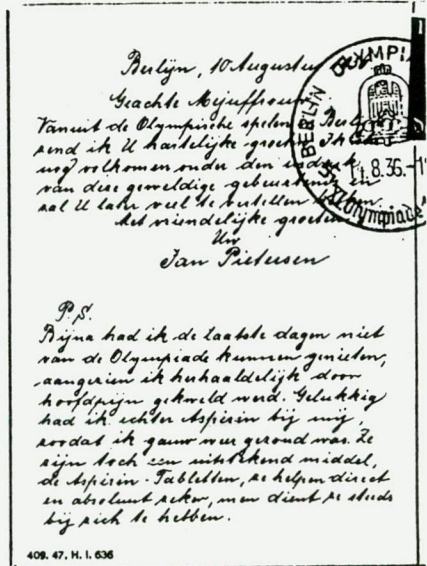 Berlijn, 10 Augustus
Geachte Mejuffrouw
Vanuit de Olympische spelen Berlijn
zend ik U hartelijke groeten. Ik
nog volkomen onder den indruk
van deze geweldige gebeurtenis en
zal U later veel te vertellen hebben
Met vriendelijke groeten
Uw
Jan Pietersen
P.S.
Bijna had ik de laatste dagen niet
van de Olympiade kunnen genieten,
aangezien ik herhaaldelijk door
hoofdpijn gekweld werd. Gelukkig
had ik echter Aspirin bij mij,
zoodat ik gauw weer gezond was. Ze
zijn toch een uitstekend middel,
de Aspirin-Tabletten, ze helpen direct
en absoluut zeker, men dient ze steeds
bij zich te hebben.
409. 47. H. I. 636
BERLIN OLYMPIA
11.8.36.-1